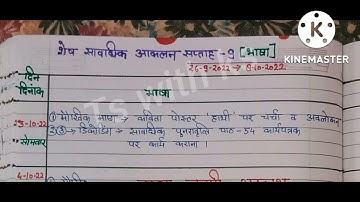 शेष सावधिक आकलन सप्ताह -9 [भाषा]
26-9-2022 → 8-10-2022
K
KINEMASTER
दिन
दिनांक
भाषा
3-10-22
सोमवार
① मौखिक भाषा → कविता पोस्टर 'हाथी' पर चर्चा व अवलोकन
②③→ डिकोडिंग → सावधिक पुनरावृत्ति पाठ-54 कार्यपत्रक
पर कार्य कराना।
4-10-22